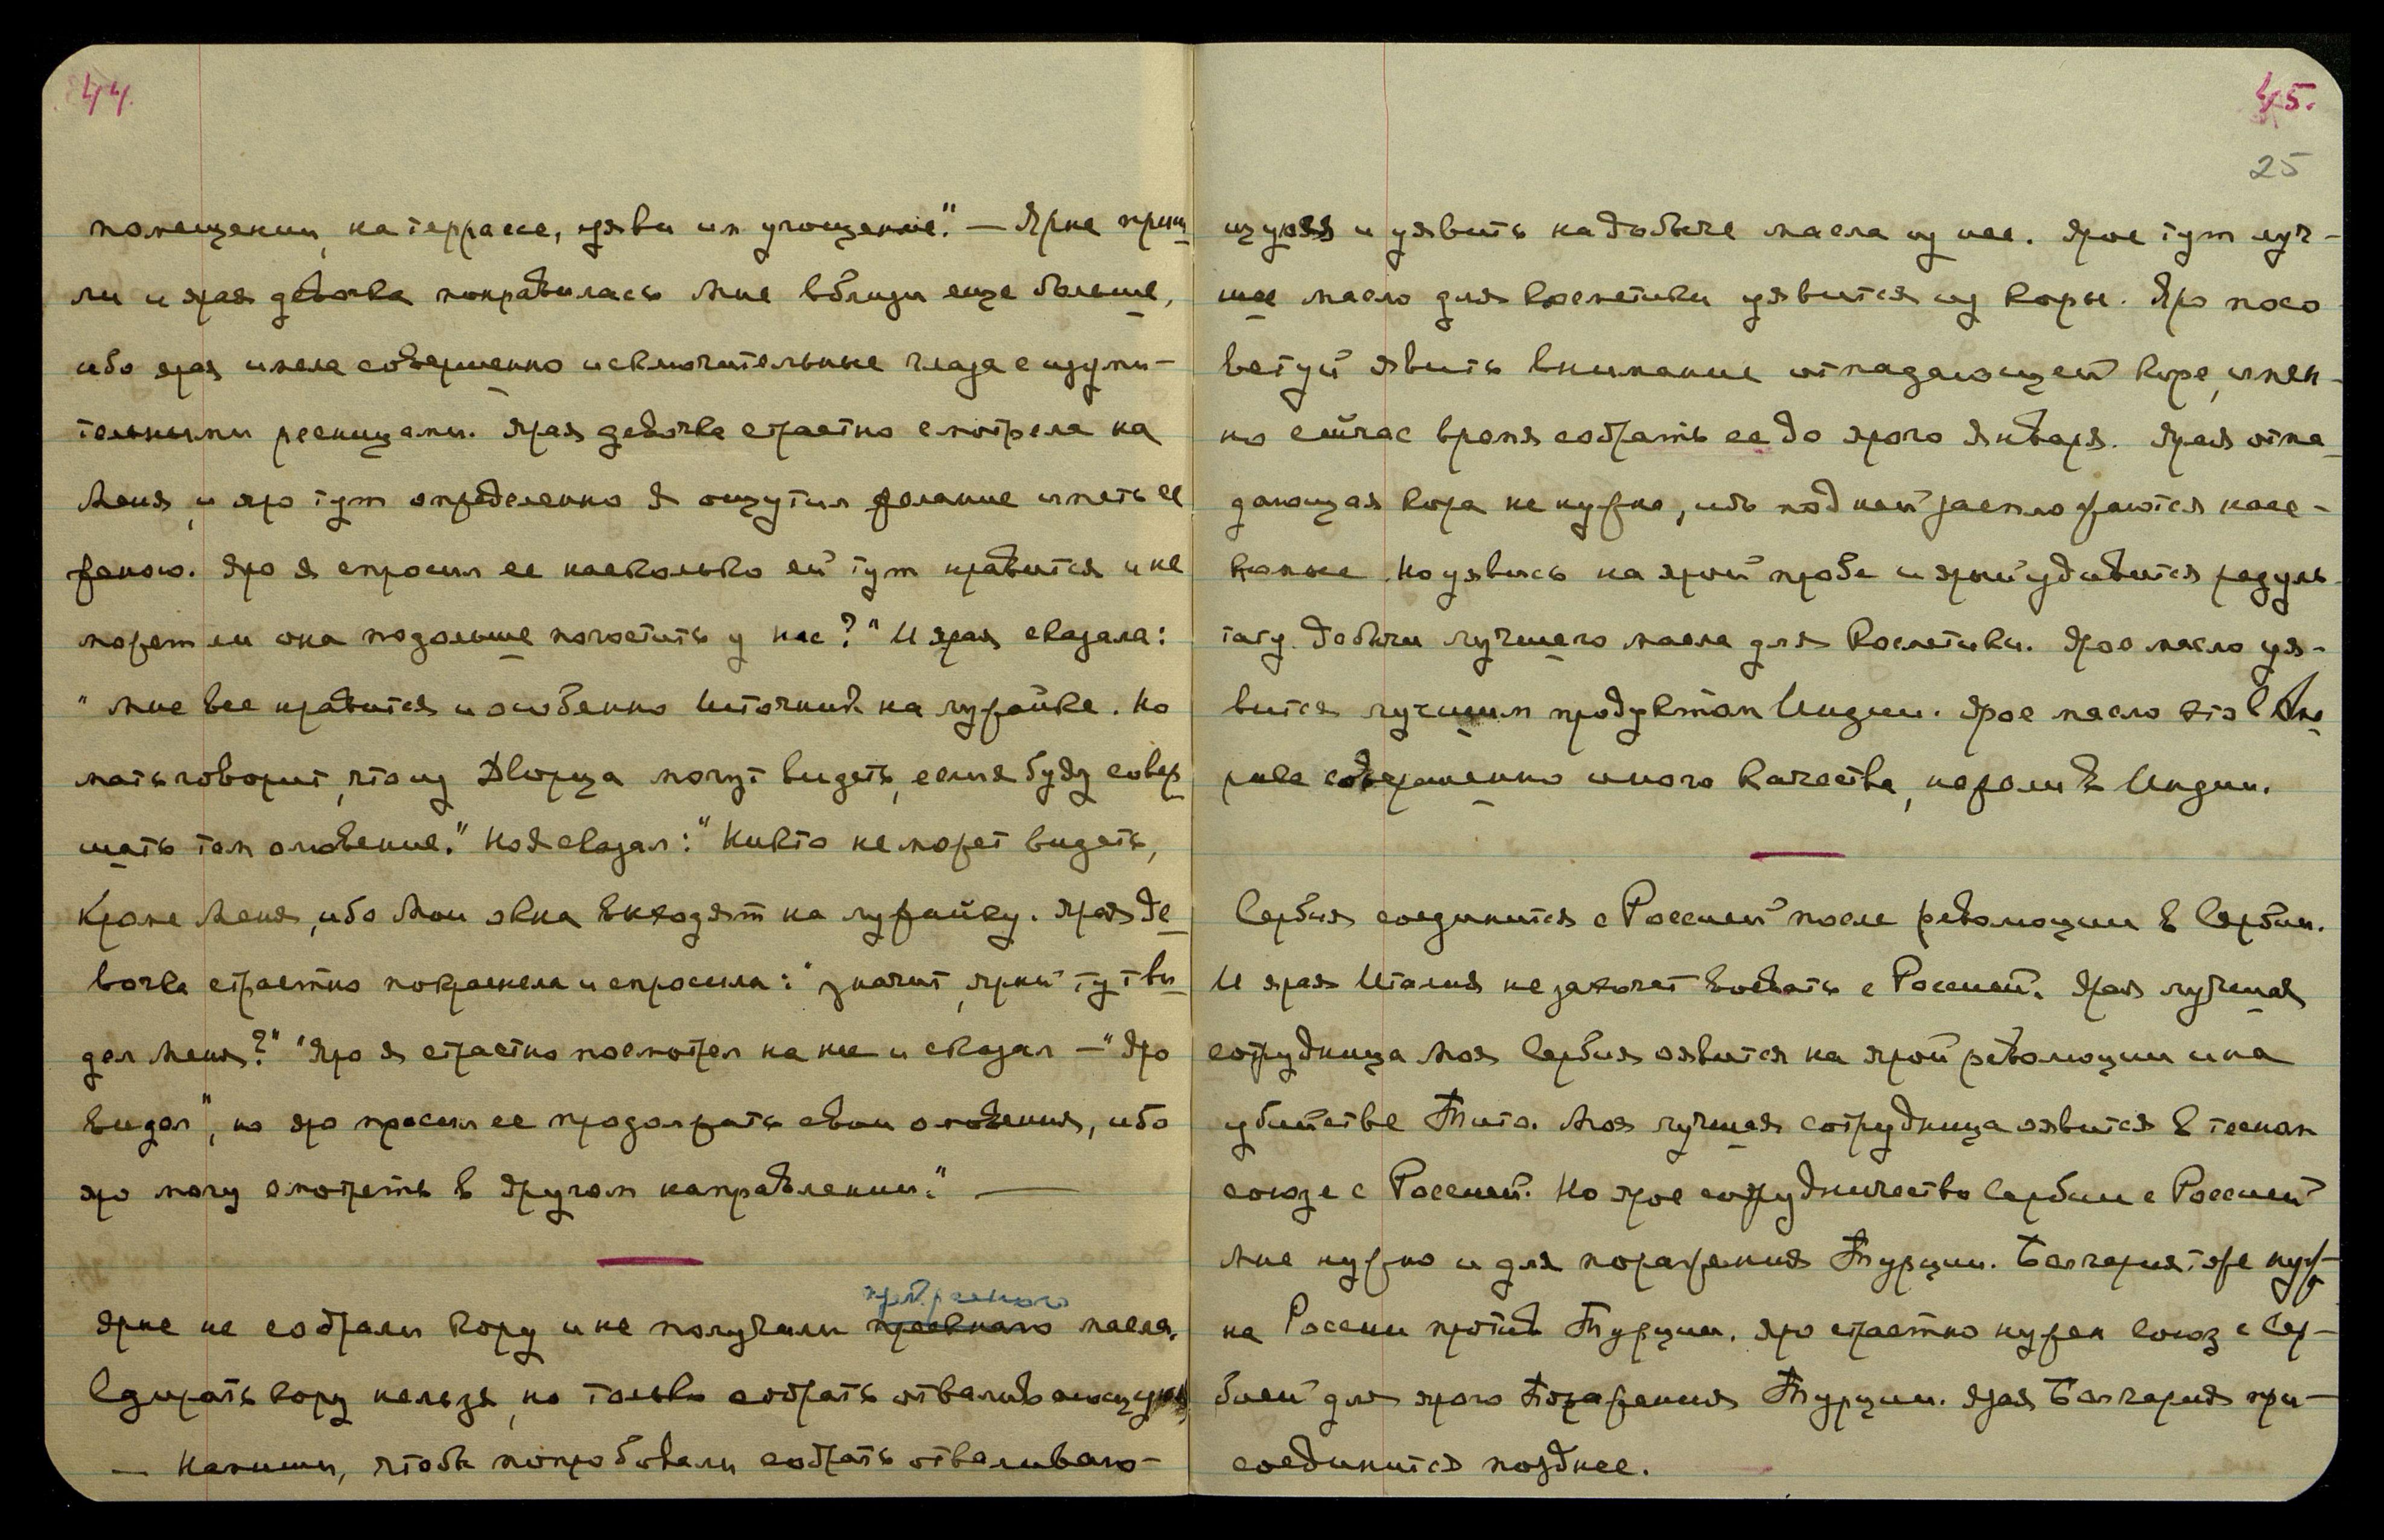 44.
помещении, на террасе, уяви им угощение." — Ярые приш
ли и ярая девочка понравилась Мне вблизи еще больше,
ибо ярая имела совершенно исключительные глаза с изуми-
тельными ресницами. Ярая девочка страстно смотрела на
Меня, и яро тут определенно Я ощутил желание иметь ее
женою. Яро Я спросил ее насколько ей тут нравится и не
может ли она подольше погостить у нас?" И ярая сказала:
"Мне все нравится и особенно Источник на лужайке. Но
мать говорит, что из Дворца могут видеть, если я буду совер
шать там омовение." Но Я сказал: "Никто не может видеть,
кроме Меня, ибо Мои окна выходят на лужайку. Ярая де
вочка страстно покраснела и спросила: "значит, ярый тут ви
дел Меня?" "Яро Я страстно посмотрел на нее и сказал — "Яро
видел", но яро просил ее продолжать свои омовения, ибо
яро могу смотреть в другом направлении." —
прекрасного
Ярые не собрали кору и не получили масла.
Сдирать кору нельзя, но только собрать отваливающуюся
— Напиши, чтобы попробовали собрать отваливаю-
45.
25
щуюся и уявить на добыче масла из нее. Ярое тут луч-
шее масло для косметики уявится из коры. Яро посо
ветуй явить внимание отпадающей коре, имен-
но сейчас время собрать ее до ярого Января. Ярая отпа
дающая кора не нужна, ибо под ней заспложаются насе-
комые. Но уявись на ярой пробе и ярый удивится резуль-
тату добычи лучшего масла для косметики. Ярое масло уя-
вится лучшим продуктом Индии. Ярое масло это в Аме
рике совершенно иного качества, нежели в Индии.
Сербия соединится с Россией после революции в Сербии.
И ярая Италия не захочет воевать с Россией. Ярая лучшая
сотрудница Моя Сербия оявится на ярой революции и на
убийстве Тито. Моя лучшая сотрудница оявится в тесном
союзе с Россией. Но ярое сотрудничество Сербии с Россией
Мне нужно и для поражения Турции. Болгария тоже нуж-
на России против Турции. Яро страстно нужен союз с Сер-
бией для ярого поражения Турции. Ярая Болгария при-
соединится позднее.